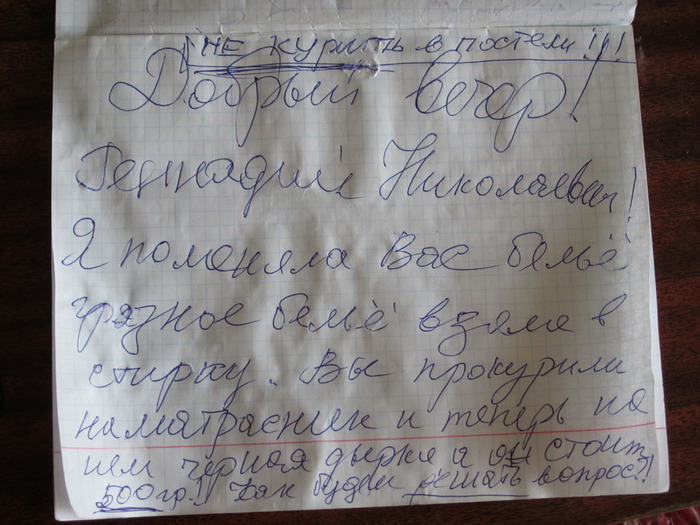 ! НЕ КУРИТЬ в постели!!!
Добрый вечер!
Геннадий Николаевич!
Я поменяла Вас бельё
грязное бельё взяла в
стирку. Вы прокурили
наматрасник и теперь на
нем черная дырка а он стоит
500 гр.! Как будем решать вопрос?!